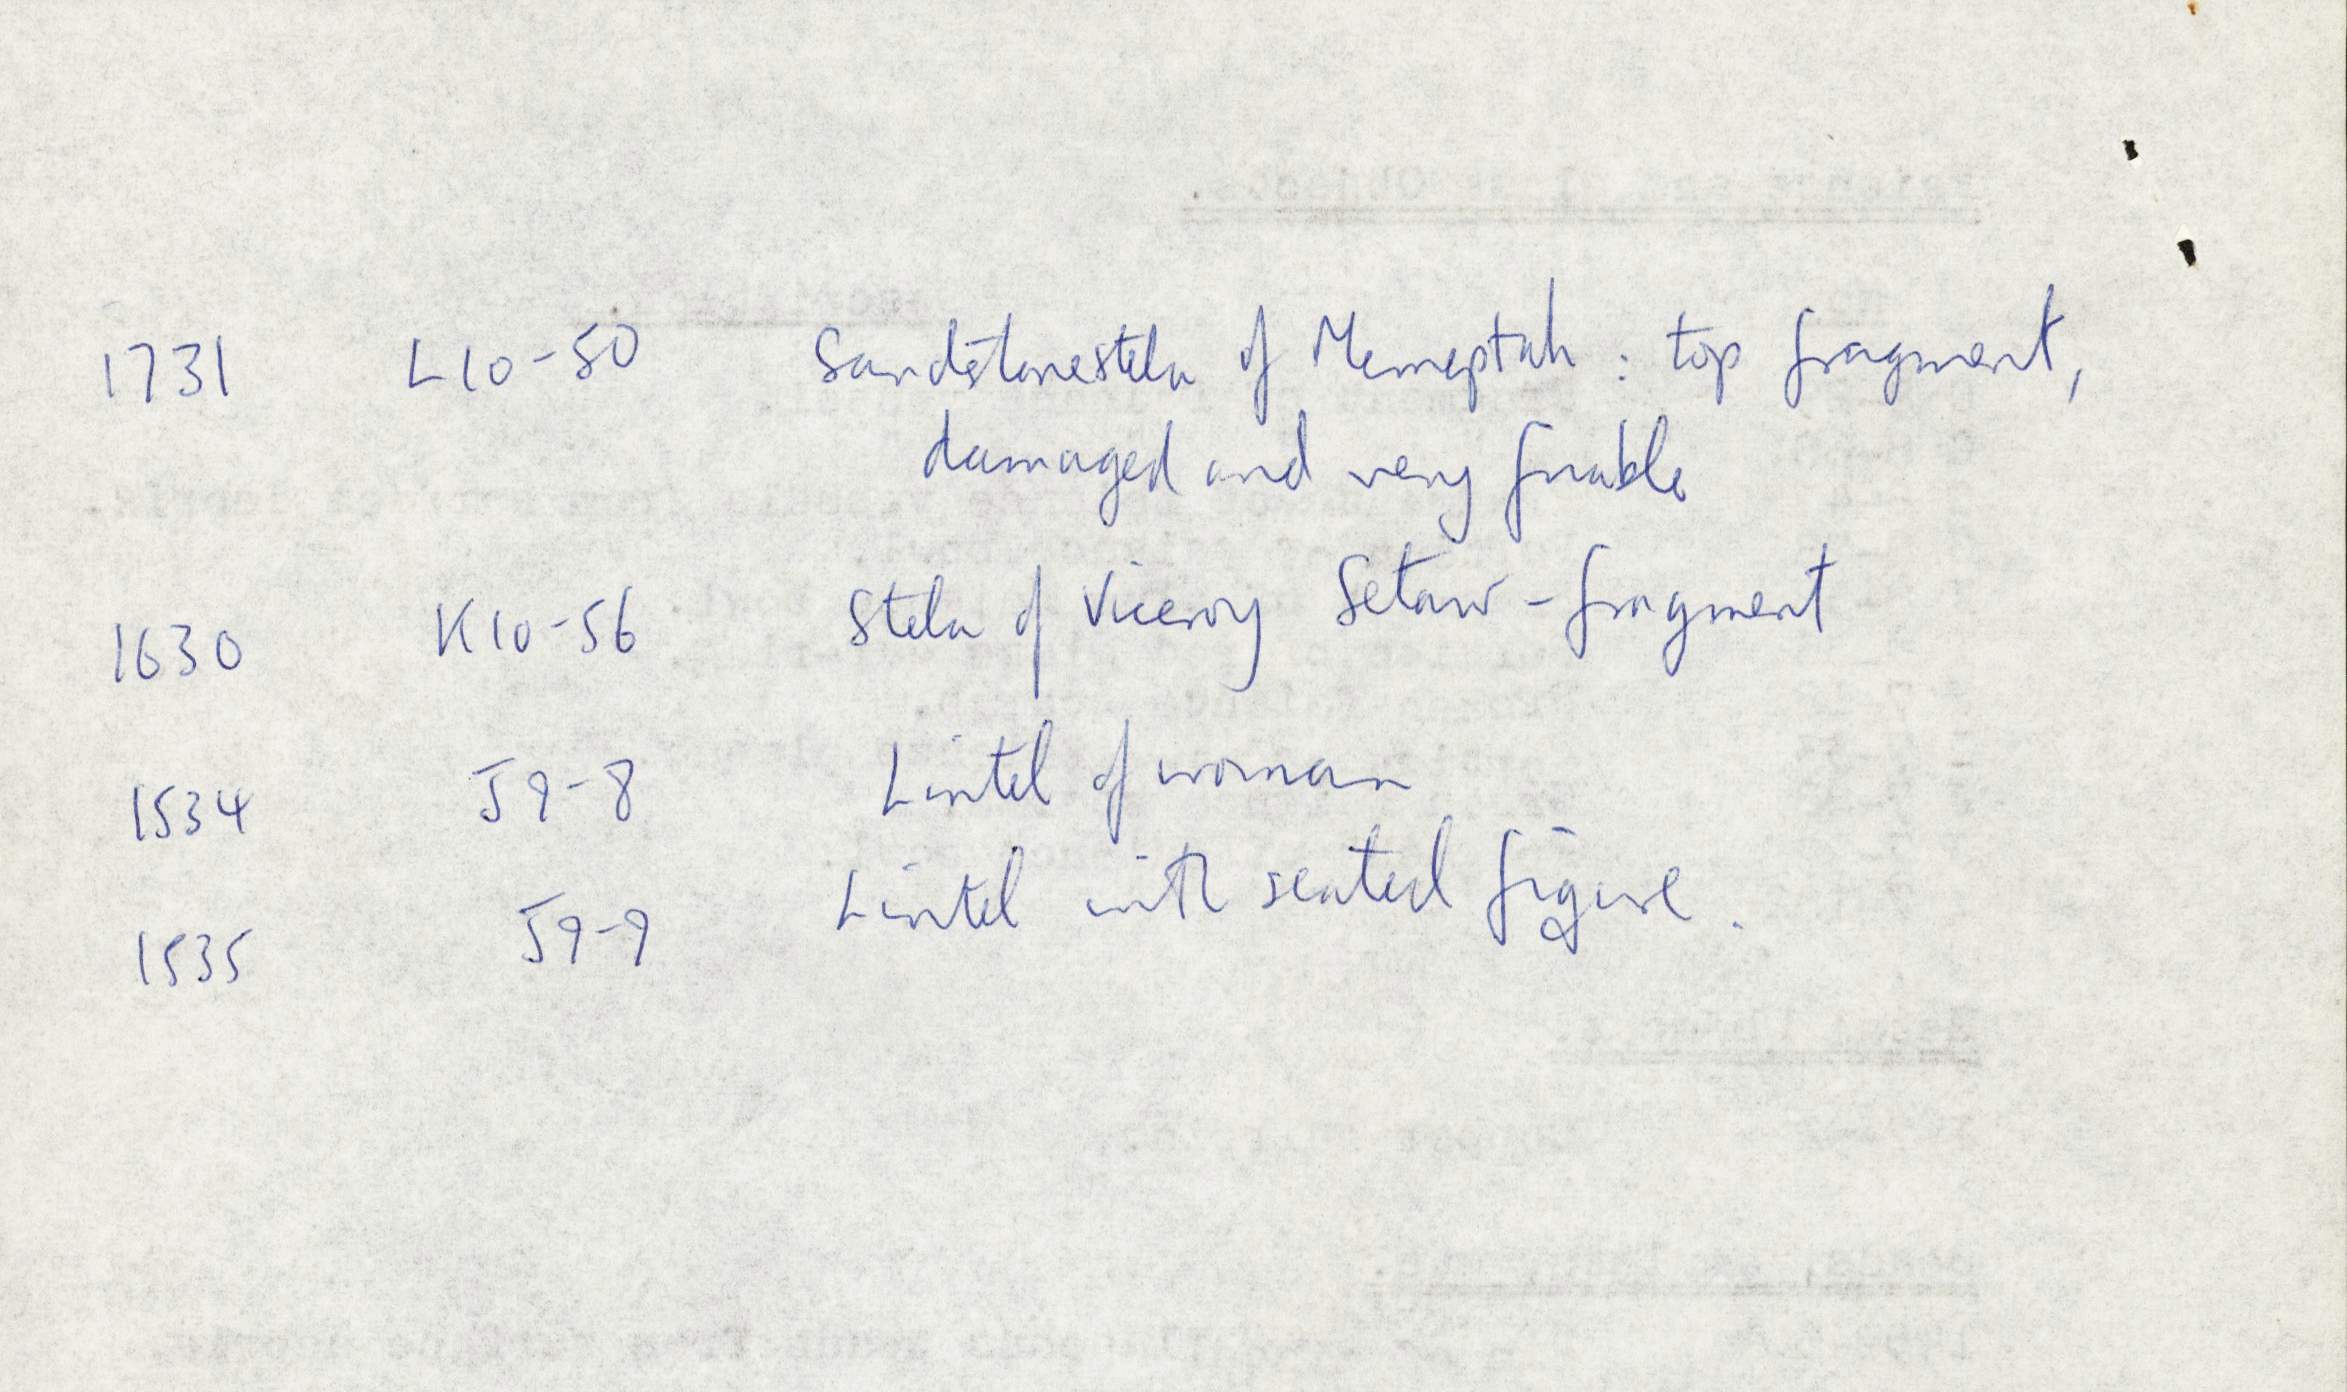 1731 L10-50 Sandstone stela of Merneptah : top fragment,
damaged and very friable
1630 K10-56 Stela of Viceroy Setaw - fragment
1534 J9-8 Lintel of woman
1535 J9-9 Lintel with seated figure.